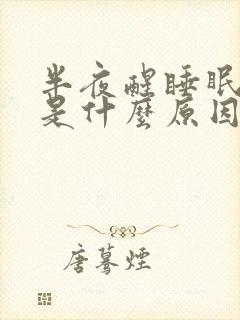 半夜醒睡眠
是什麼原因
唐蓦煙